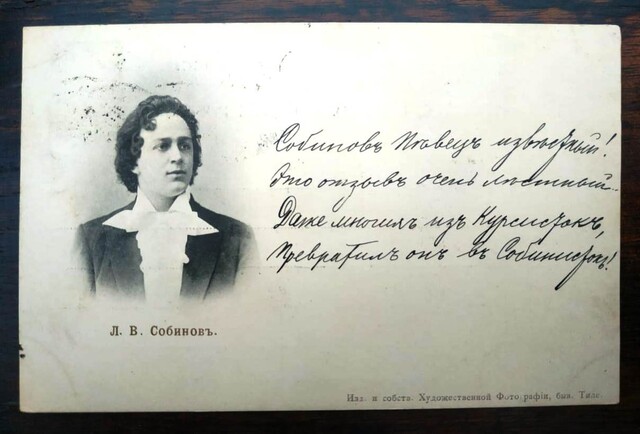 Собиновъ Пѣвецъ извѣстный!
Это отзывъ очень лестный..
Даже многихъ изъ Курсистокъ,
Превратилъ онъ въ Собинистокъ!
Л. В. Собиновъ.
Изд. и собств. Художественной Фотографіи, быв. Тиле.